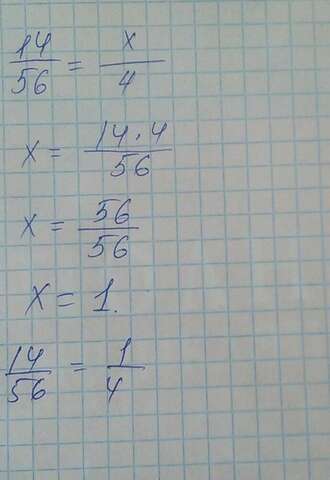 14/56 = x/4
x = 14·4/56
x = 56/56
x = 1.
14/56 = 1/4